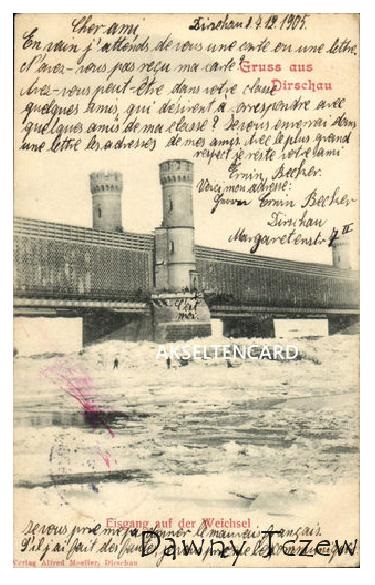 Cher ami
Dirschau 14.12.1905.
En vain j'attends de vous une carte ou une lettre.
N'avez-vous pas reçu ma carte?
Gruss aus
Dirschau
Avez-vous peut-être dans votre classe
quelques amis, qui désirent à correspondre avec
quelques amis de ma classe? Je vous enverrai dans
une lettre les adresses de mes amis. Avec le plus grand
respect je reste votre ami
Erwin Becker.
Voici mon adresse:
Erwin Becker
Dirschau
Margaretenstr.
AKSELTENCARD
Eisgang auf der Weichsel
Je vous prie me pardonner le mauvais français.
S'il j'ai fait des fautes, je vous prie me les communiquer
Dawny Tczew
Verlag Alfred Moeller, Dirschau